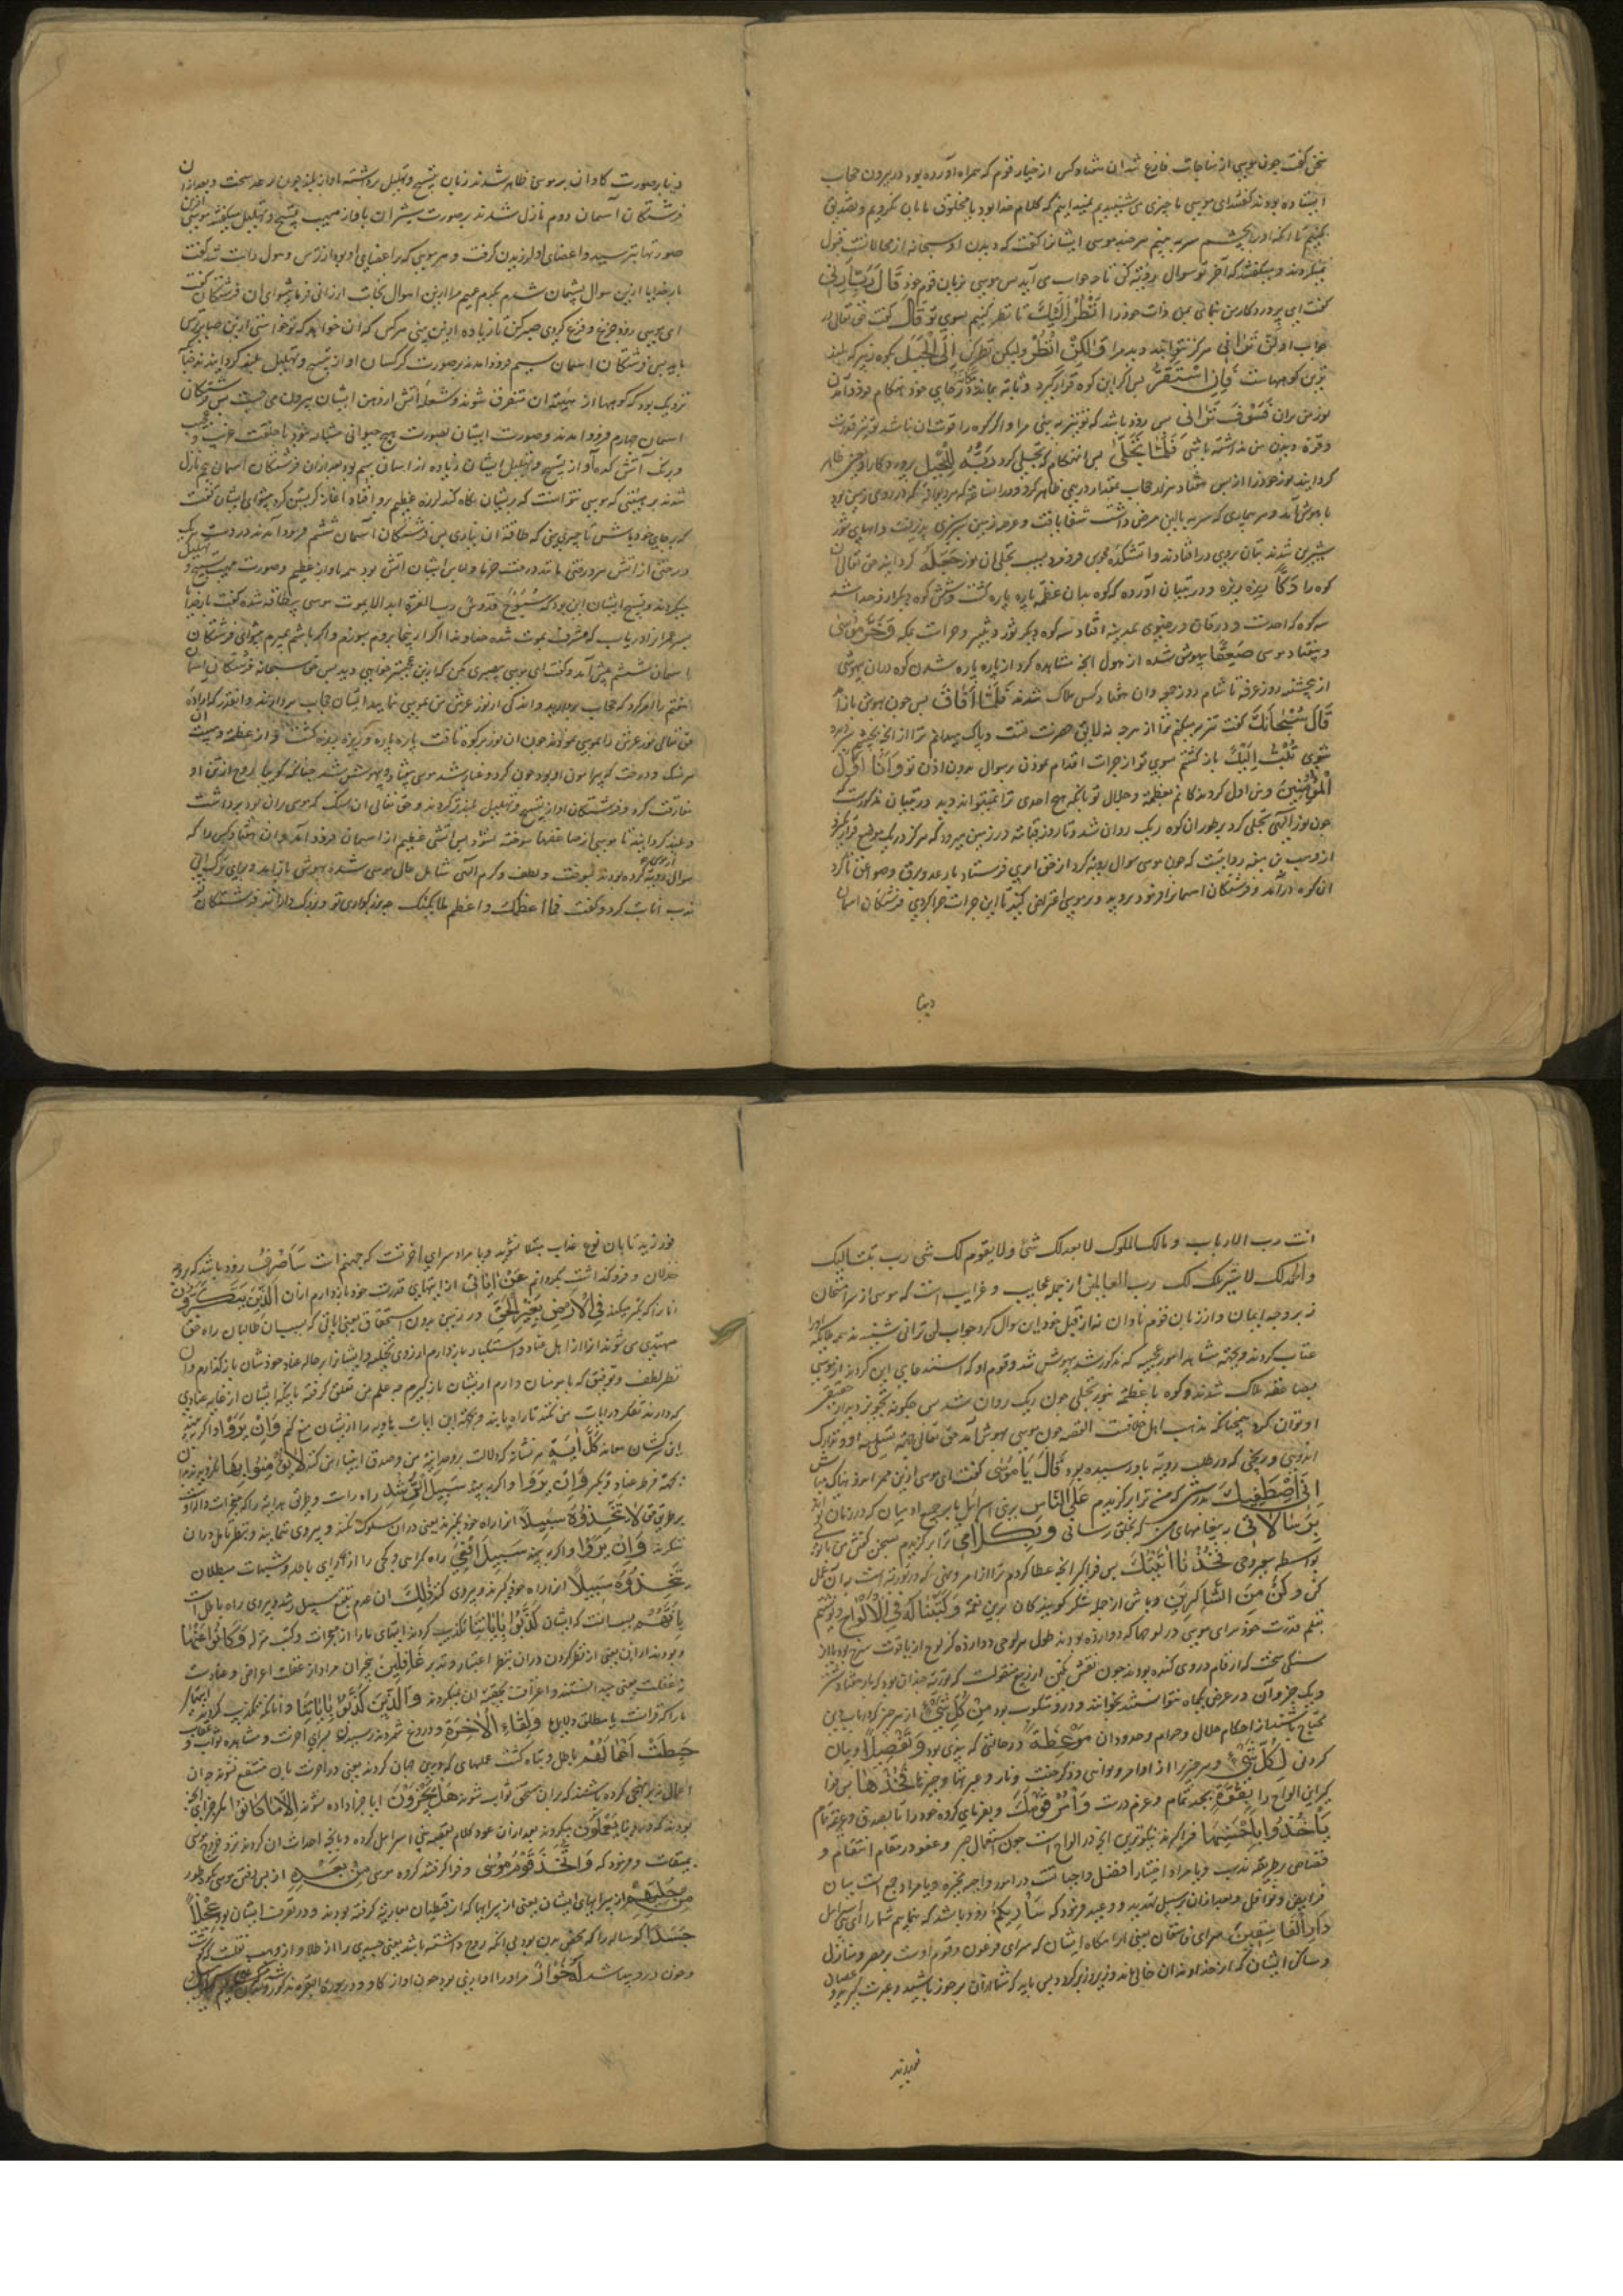 سخن گفت چون موسی از مناجات فارغ شد آن هفتاد کس از خیار قوم که همراه آورده بود در بیرون حجاب
ایستاده بودند گفتند ای موسی ما چیزی می شنیدیم نمیدانیم که کلام خدا بود یا مخلوق ما بآن نگرویم و تصدیق
نکنیم تا آنکه او را بچشم سر به بینیم هرچند موسی ایشانرا گفت که دیدن او سبحانه از محالاتست قبول
نمیکردند و میگفتند که آخر تو سوال رویت کن تا چه جواب می آید پس موسی بزبان قوم خود قَالَ رَبِّ أَرِنِي
گفت ای پروردگار من بنمائی بمن ذات خود را أَنْظُرْ إِلَيْكَ تا نظر کنیم بسوی تو قَالَ گفت حق تعالی در
جواب او لَنْ تَرَانِي هرگز نتوانید دید مرا وَلَٰكِنِ انْظُرْ ولیکن نظر کن إِلَى الْجَبَلِ بکوه زبیر که بلند
ترین کوههاست فَإِنِ اسْتَقَرَّ پس اگر این کوه قرار گیرد و ثابت بماند مَكَانَهُ در جای خود هنگام فرود آمدن
نور من بران فَسَوْفَ تَرَانِي پس زود باشد که تو نیز به بینی مرا و اگر کوه را قوت آن نباشد تو نیز قدرت
و قوة دیدن من نداشته باشی فَلَمَّا تَجَلَّىٰ پس آنهنگام که تجلی کرد رَبُّهُ لِلْجَبَلِ پروردگار او یعنی ظاهر
گردانید نور خود را از پس هفتاد هزار حجاب بمقدار درهمی ظاهر کرد و دران ساعت که هر دیوانه که در روی زمین بود
باهوش آمد و هر بیماری که سر به بالین مرض داشت شفا یافت و عرصه زمین سبزی پذیرفت و آبهای شور
شیرین شدند بتان بروی در افتادند و آتشکده مجوس فرو مرد بسبب تجلی آن نور جَعَلَهُ گردانید حق تعالی آن
کوه را دَكًّا ریزه ریزه و در تبیان آورده که کوه بدان عظمت پاره پاره گشت و شش کوه دیگر از و جدا شد
سه کوه که احد است و ورقان و رضوی بمدینه افتاد سه کوه دیگر ثور و ثبیر و حراست بمکه وَخَرَّ مُوسَىٰ
و بیفتاد موسی صَعِقًا بیهوش شده از هول آنچه مشاهده کرد از پاره پاره شدن کوه دران بیهوشی
از پنجشنبه روز عرفه تا شام روز جمعه و آن هفتاد کس هلاک شدند فَلَمَّا أَفَاقَ پس چون بهوش باز آمد
قَالَ سُبْحَانَكَ گفت تنزیه میکنم ترا از هرچه نه لایق حضرت تست و پاک میدانم ترا از آنچه بچشم سر دیده
شوی تُبْتُ إِلَيْكَ باز گشتم بسوی تو از جرات اقدام نمودن بسوال بدون اذن تو وَأَنَا أَوَّلُ
الْمُؤْمِنِينَ و من اول گرویدگانم بعظمت و جلال تو بآنکه هیچ احدی ترا نمیتواند دید در تبیان مذکور است که
چون نور الهی تجلی کرد بر طور آن کوه ریک روان شد و تا روز قیامة در زمین میرود که هرگز در یک موضع قرار نگیرد
از وهب بن منبه روایتست که چون موسی سوال رویة کرد از حق ابری فرستاد با رعد و برق و صواعق تا گرد
آن کوه در آمد و فرشتگان آسمانرا فرمود بروید و بر موسی اعتراض کنید تا این جرات چرا کردی فرشتگان آسمان
دنیا
دنیا بر صورت کاوان بر موسی ظاهر شدند زبان بتسبیح و تهلیل برداشته باواز بلند چون رعد سخت و بعد ازان
فرشتگان آسمان دوم نازل شدند بر صورت شیران باواز مهیب تسبیح و تهلیل میگفتند موسی ازین
صورتها بترسید و اعضای او لرزیدن گرفت و هر موئی که بر اعضای او بود از ترس و هول راست شد گفت
بار خدایا ازین سوال پشیمان شدم بکرم عمیم مرا ازین اهوال نجات ارزانی فرمای پیشوای آن فرشتگان گفت
ای موسی زود جزع و فزع کردی صبر کن تا زیاده ازین بینی هرکس که آن خواهد که تو خواستی ازین صبایرترش
باید پس فرشتگان آسمان سیم فرود آمدند بر صورت کرکسان آواز تسبیح و تهلیل بلند گردانیدند چنانکه
نزدیک بود که کوهها از هیبت آن متفرق شوند و شعله آتش از دهن ایشان بیرون می جست پس فرشتگان
آسمان چهارم فرود آمدند و صورت ایشان بصورت هیچ حیوانی مشابه نبود با خلقت غریب و عجیب
و رنگ آتش کده آواز تسبیح و تهلیل ایشان زیاده از آسمان سیم بود بعد ازان فرشتگان آسمان پنجم نازل
شدند بر هیئتی که موسی نتوانست که بر ایشان نگاه کند لرزه عظیم برو افتاد آغاز گریستن کرد پیشوای ایشان گفت
که بر جای خود باش تا چیزی بینی که طاقت آن نیاری پس فرشتگان آسمان ششم فرود آمدند در دست هر یک
درختی از آتش هر درختی مانند درخت خرما و لباس ایشان آتش بود همه باواز عظیم و صورت مهیب تسبیح و تهلیل
میکردند و تسبیح ایشان این بود که سُبُّوحٌ قُدُّوسٌ رب العزة ابدا لا یموت موسی بیطاقه شده گفت بار خدایا
پسر عمران را دریاب که مشرف بموت شده خداوندا اگر از اینجا بروم بسوزم و اگر باشم بمیرم پیشوای فرشتگان
آسمان ششم پیش آمد و گفت ای موسی صبری کن که ازین عجیبتر خواهی دید پس حق سبحانه فرشتگان آسمان
هفتم را امر کرد که حجاب بردارید و اندکی از نور عرش من بموسی نمایید ایشان حجاب برداشتند و آنقدر که اراده
حق تعالی نور عرش را بموسی نمودند چون آن نور بر کوه تافت پاره پاره و ریزه ریزه گشت و از عظمة و هیبت آن
هر سنگ و درخت که پیرامون او بود چون گرد و غبار شد موسی بیفتاد و بیهوش شد چنانکه گوییا روح از تن او
مفارقت کرد و فرشتگان آواز تسبیح و تهلیل بلندتر کردند و حق تعالی آن سنگ که موسی بران بود برداشت
و بلند گردانید تا موسی از صاعقها سوخته نشود پس آتشی عظیم از آسمان فرود آمد و آن هفتاد کس را که
سوال رویة کرده بودند از موسی بسوخت و لطف و کرم الهی شامل حال موسی شده بهوش باز آمد و برپای ترک ادبی
ندب انابت کرد و گفت فما اعظمک و اعظم ملائکتک چه بزرگواری تو و بزرگوارانند فرشتگان تو
انت رب الارباب و مالک الملوک لا یعدلک شئ و لا یقوم لک شئ رب تبت الیک
و الحمد لک لا شریک لک رب العالمین از جمله عجایب و غرایب است که موسی از سر امتحان
نه بر وجه ایمان و از زبان قوم نادان نه از قبل خود این سوال کرد جواب لن ترانی شنید ملائکه او را
عتاب کردند و بجهت مشاهده امور عجیبه که مذکور شد بیهوش شد و قوم او که استدعای این کردند از موسی
بصاعقه هلاک شدند و کوه با عظمت بنور تجلی چون ریک روان شد پس چگونه تجویز دیدار حضرت
او توان کرد چنانکه مذهب اهل خلافت القصه چون موسی بهوش آمد حق تعالی بجهت تسلیه او و تدارک
اندوهی و رنجی که در طلب رویة باو رسیده بود قَالَ يَا مُوسَىٰ گفت ای موسی ازین ممر اندوهناک مباش
إِنِّي اصْطَفَيْتُكَ بدرستی که من ترا برگزیدم عَلَى النَّاسِ بر بنی اسرائیل یا بر جمیع آدمیان که در زمان تو اند
بِرِسَالَاتِي به پیغامهای من که بخلق رسانی وَبِكَلَامِي و ترا برگزیدم بسخن گفتن من با تو بی
توسط هیچ وحی فَخُذْ مَا آتَيْتُكَ پس فراگیر آنچه عطا کردم ترا از امر و نهی که در توریة است بدان عمل
کن وَكُنْ مِنَ الشَّاكِرِينَ و باش از جمله شکر گویندگان برین نعمة وَكَتَبْنَا لَهُ فِي الْأَلْوَاحِ و نوشتیم
بقلم قدرت خود برای موسی در لوحها که دوازده بودند طول هر لوحی دوازده گز لوح از یاقوت سرخ بود یا از
سنگی سخت که ارقام در وی کنده بودند چون نقش نگین از ربیع منقولست که توریة چندان بود که بار هفتاد شتر
و یک جزو آن در عرض یکماه نتوانستند بخوانند و درو مکتوب بود مِنْ كُلِّ شَيْءٍ از هر چیز که ارباب دین
محتاج باشند از احکام حلال و حرام و حدود آن مَوْعِظَةً در حالتی که پندی بود وَتَفْصِيلًا و بیان
کردنی لِكُلِّ شَيْءٍ مر هر چیز را از اوامر و نواهی و ذکر جنت و نار و عبرتها و خبرها فَخُذْهَا پس فرا
گیر این الواح را بِقُوَّةٍ بجد تمام و عزم درست وَأْمُرْ قَوْمَكَ و بفرمای گروه خود را تا بصدق و رغبة تمام
يَأْخُذُوا بِأَحْسَنِهَا فراگیرند نیکوترین آنچه در الواح است چون استعمال صبر و عفو در مقام انتقام و
قصاص بطریقه ندب و یا مراد اختیار افضل واجباتست در امور واجبه مخیره و یا مراد جمع است میان
فرایض و نوافل و بعد ازان بر سبیل تهدید و وعید فرمود که سَأُرِيكُمْ زود باشد که بنمایم شما را ای بنی اسرائیل
دَارَ الْفَاسِقِينَ سرای فاسقان یعنی آرامگاه ایشان که سرای فرعون و قوم اوست بمصر و منازل
و مساکن ایشان که از خداوندان خالی ماند و زیر و زبر گردد پس باید که شما ازان بر حذر باشید و عبرت گیرید و عصیان
نورزید
نورزید تا بآن نوع عذاب مبتلا نشوید و یا مراد سرای آخرتست که جهنم است سَأَصْرِفُ زود باشد که برود
خذلان و فروگذاشت بگردانم عَنْ آيَاتِيَ از آیتهای قدرت خود بازدارم از آن الَّذِينَ يَتَكَبَّرُونَ
آنانرا که تکبر میکنند فِي الْأَرْضِ بِغَيْرِ الْحَقِّ در زمین بدون استحقاق یعنی آیاتی که بسبب آن طالبان راه حق
مهتدی می شوند آنرا از اهل عناد و استکبار بازدارم از روی تخلیه و ایشانرا بر حاله عناد خودشان بازگذارم و آن
نظر لطف و توفیق که با مومنان دارم از ایشان بازگیرم چه علم من تعلق گرفته بآنکه ایشان از غایت عنادی
که دارند تفکر در آیات من نکنند تا راه یابند و بجهت این آیات باهره را از ایشان منع کنم وَإِنْ يَرَوْا و اگر به بینند
این سرکشان معاند كُلَّ آيَةٍ هر نشانه که دلالت بر وحدانیت من و صدق انبیا من کند لَا يُؤْمِنُوا بِهَا نگروند بدان
بجهت فرط عناد و تکبر وَإِنْ يَرَوْا و اگر به بینند سَبِيلَ الرُّشْدِ راه راست و طریق هدایة را که معجزات دالست
بر طریق حق لَا يَتَّخِذُوهُ سَبِيلًا آنرا راه خود نگیرند یعنی دران سلوک نکنند و پیروی ننمایند و بنظر تامل دران
ننگرند وَإِنْ يَرَوْا و اگر به بینند سَبِيلَ الْغَيِّ راه گمراهی و کجی را از گردهای باطله و شبهات مبطلان
يَتَّخِذُوهُ سَبِيلًا آنرا راه خود گیرند و پیروی کنند ذَٰلِكَ آن عدم تتبع سبیل رشد و پیروی راه باطل است
بِأَنَّهُمْ بسبب آنست که ایشان كَذَّبُوا بِآيَاتِنَا تکذیب کردند آیتهای ما را از معجزات و کتب منزله وَكَانُوا عَنْهَا
و بودند ازان یعنی از نظر کردن دران بنظر اعتبار و تدبر غَافِلِينَ بیخبران مراد از غفلت اعراض و عنادست
نه غفلت یعنی میدانستند و اعتراف بحقیقت آن نمیکردند وَالَّذِينَ كَذَّبُوا بِآيَاتِنَا و آنانکه تکذیب کردند آیتها
ما را که قرآنست یا مطلق دلایل وَلِقَاءِ الْآخِرَةِ و دروغ شمردند رسیدن بسرای آخرت و مشاهده ثواب و عقاب
حَبِطَتْ أَعْمَالُهُمْ باطل و تباه گشت عملهای که در این جهان کردند یعنی در آخرت بآن منتفع نشوند چه آن
اعمال نه بر نهجی کرده باشند که بران مستحق ثواب شوند هَلْ يُجْزَوْنَ آیا جزا داده شوند إِلَّا مَا كَانُوا مگر جزای آنچه
بودند که در دنیا يَعْمَلُونَ میکردند بعد ازان عود کلام بقصه بنی اسرائیل کرده و بآنچه احداث آن کردند نزد خروج موسی
بمیقات و فرمود که وَاتَّخَذَ قَوْمُ مُوسَىٰ و فرا گرفتند گروه موسی مِنْ بَعْدِهِ از پس رفتن موسی بکوه طور
مِنْ حُلِيِّهِمْ از پیرایهای ایشان یعنی از پیرایها که از قبطیان بعاریت گرفته بودند و در تصرف ایشان بود عِجْلًا
جَسَدًا گوساله را که محض بدن بود بی آنکه روح داشته باشد یعنی جسدی را از طلا و از وهب نقلست که گوشت
و خون درو پیدا شد لَهُ خُوَارٌ مر او را آوازی بود چون آواز گاو و در سورة البقره مذکور شد